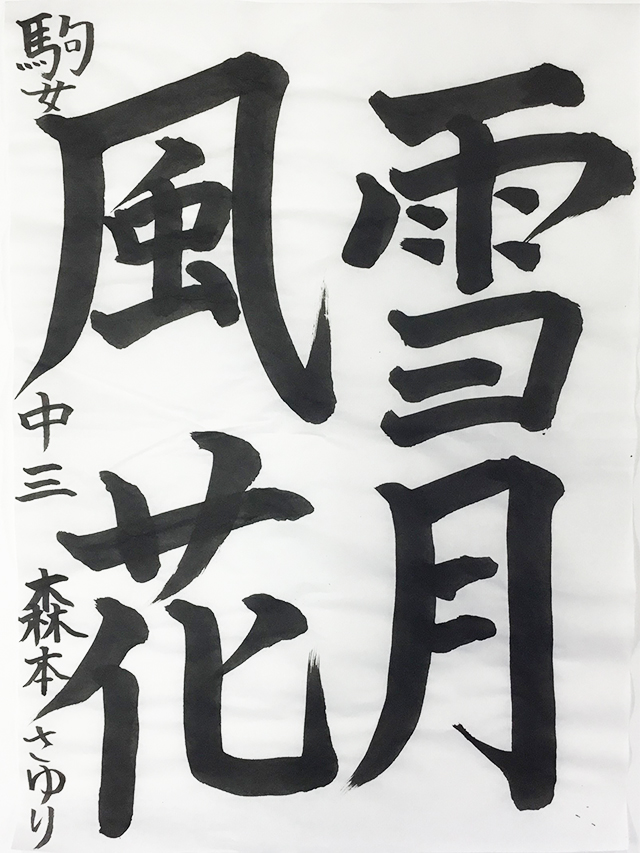 雪月
風花
駒女 中三 森本さゆり